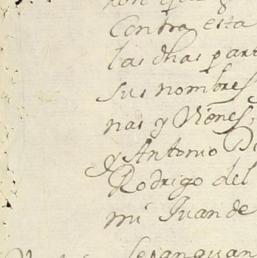 Contra esta
las dhas part
sus nombres
nas y Vienes,
y Antonio Di
Rodrigo del
mi Juan de
Sepan quan